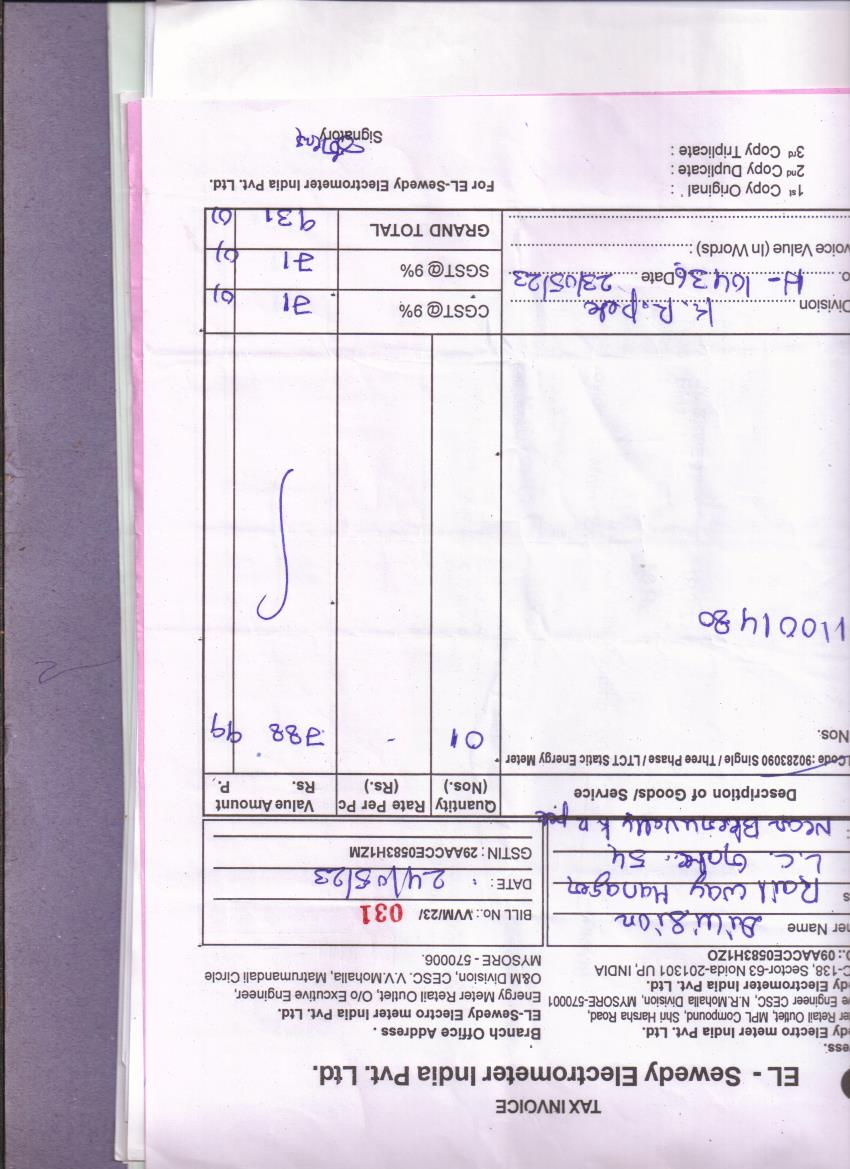 TAX INVOICE
EL - Sewedy Electrometer India Pvt. Ltd.
ess.
dy Electro meter India Pvt. Ltd.
er Retail Outlet, MPL Compound, Shri Harsha Road,
ve Engineer CESC, N.R.Mohalla Division, MYSORE-570001
dy Electrometer India Pvt. Ltd.
C-138, Sector-63 Noida-201301 UP, INDIA
O.: 09AACCE0583H1ZO
Branch Office Address .
EL-Sewedy Electro meter India Pvt. Ltd.
Energy Meter Retail Outlet, O/o Executive Engineer,
O&M Division, CESC. V.V.Mohalla, Matrumandali Circle
MYSORE - 570006.
er Name Division
s Railway Manager
L.C. Gate. 54
: Near K R pet
BILL No.: VVM/23/ 031
DATE : 24/05/23
GSTIN : 29AACCE0583H1ZM
Description of Goods/ Service Quantity (Nos.) Rate Per Pc (Rs.) Value Amount Rs. P.
Code :90283090 Single / Three Phase / LTCT Static Energy Meter
Nos. 01 - 788 99
11001480
Division K. R. pete CGST@ 9% 71 01
o. H- 10436 Date 23/05/23 SGST@ 9% 71 01
voice Value (In Words) : GRAND TOTAL 931 01
1st Copy Original :
2nd Copy Duplicate :
3rd Copy Triplicate :
For EL-Sewedy Electrometer India Pvt. Ltd.
Signatory